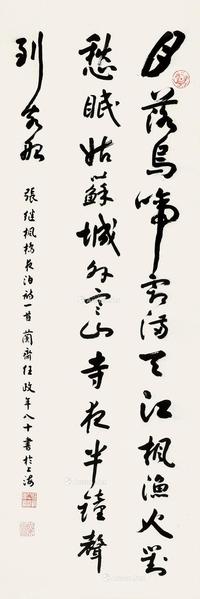 月落烏啼霜滿天江枫渔火對
愁眠姑蘇城外寒山寺夜半鐘聲
到客船
張继枫橋夜泊詩一首 蘭齋任政年八十書於上海